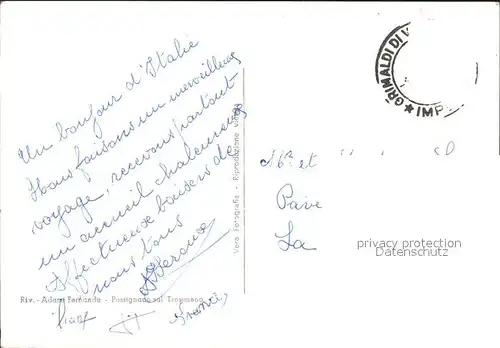 Un bonjour d'Italie
Nous faisons un merveilleux
voyage, recevons partout
un accueil chaleureux
Affectueux baisers de
nous tous
Francis
Riv. - Adami Fernanda - Passignano sul Trasimeno
Vera Fotografia - Riproduzione vietata
GRIMALDI DI V
★ IMP
Mr et
Pave
La
privacy protection
DatenSchutz